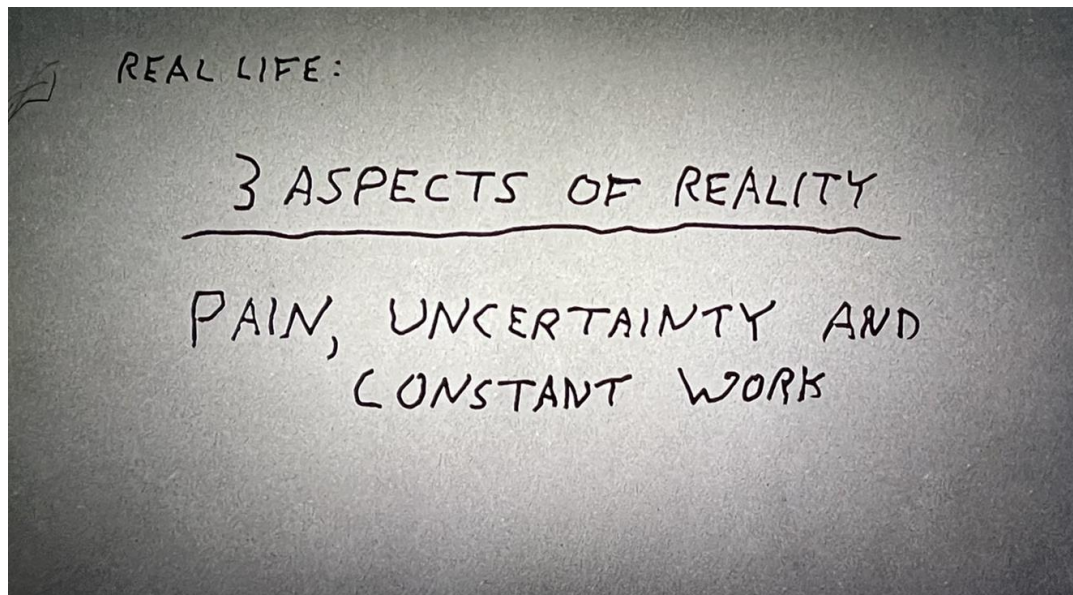 REAL LIFE:
3 ASPECTS OF REALITY
PAIN, UNCERTAINTY AND
CONSTANT WORK